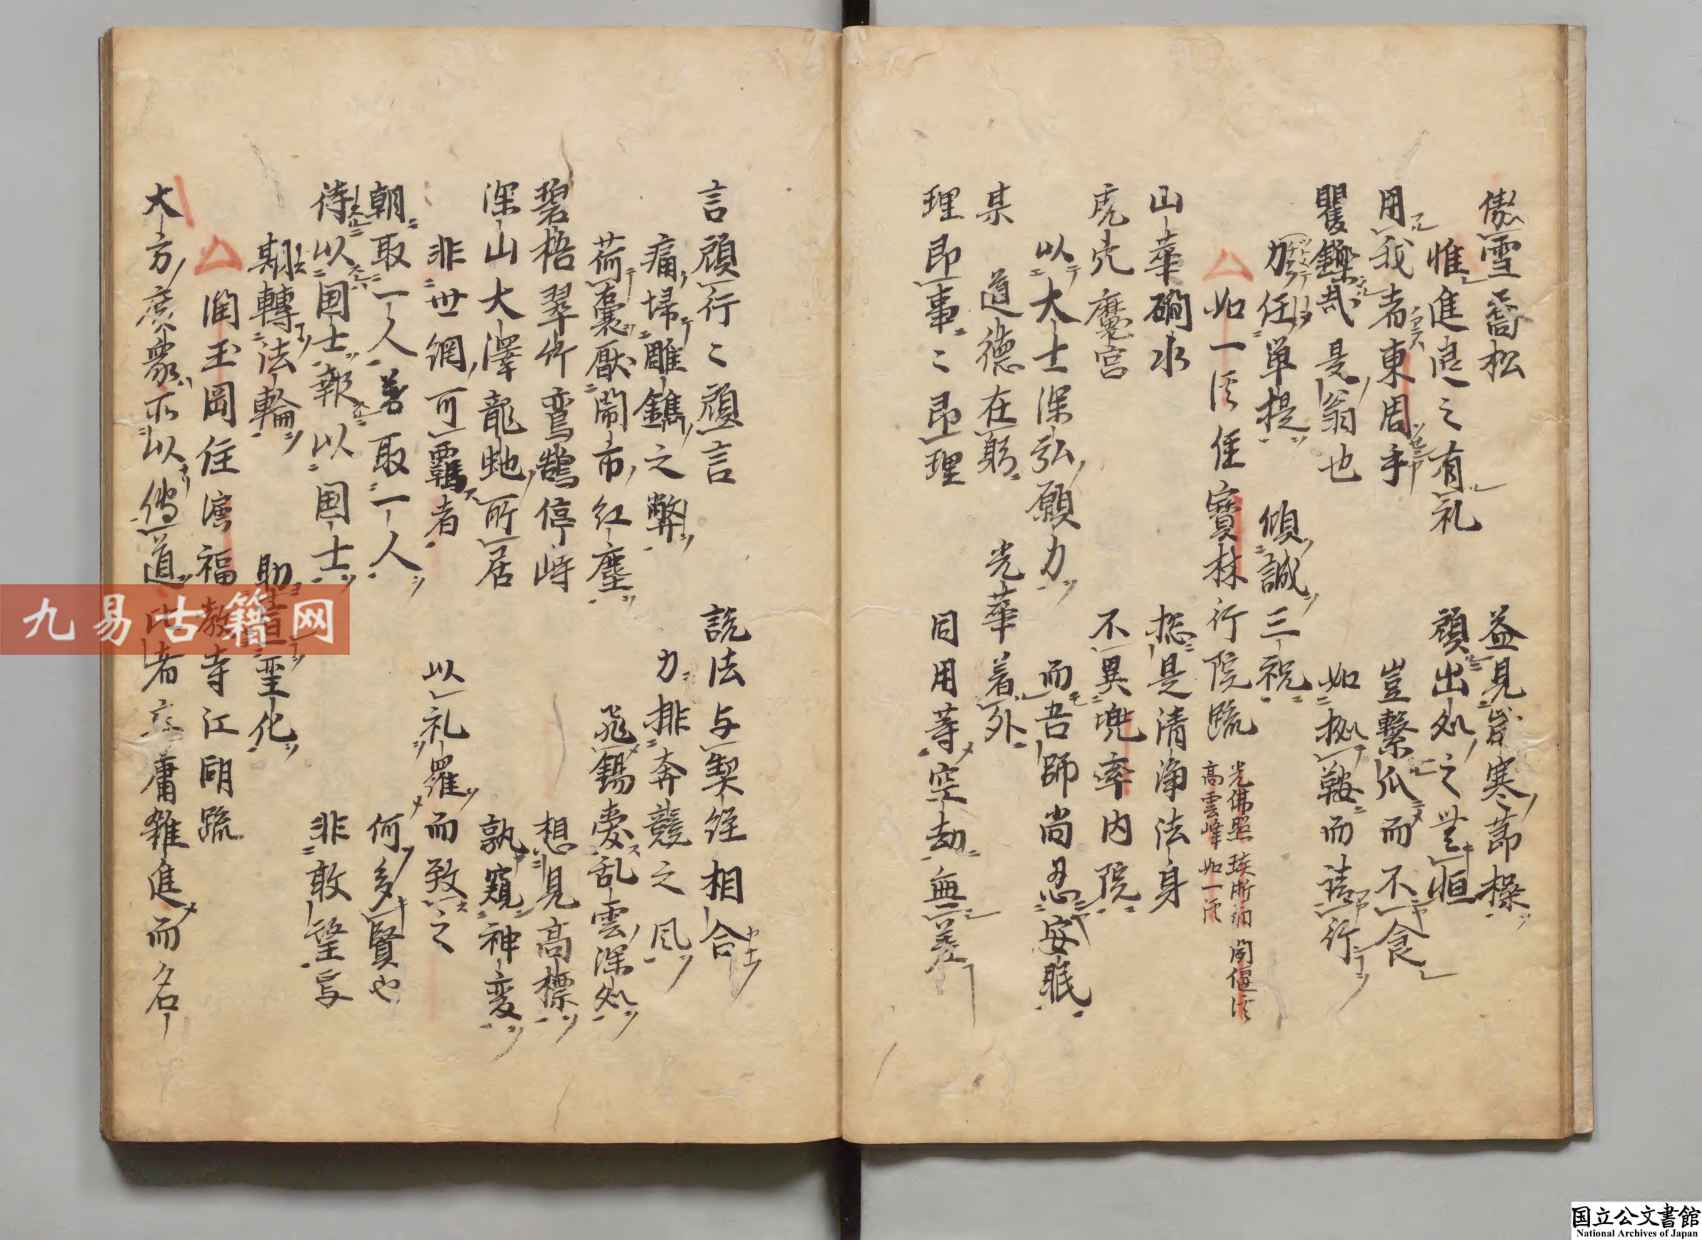 傲雪喬松　益見歳寒節操
惟進退之有礼　顧出処之無恒
用我者東周乎　豈繋瓜而不食
矍鑠哉是翁也　如拠鞍而請行
力任単提　傾誠三祝
如一　住寶林行院疏
山華磵水　揔是清浄法身
虎穴魔宮　不異兜率内院
以大士深弘願力　而吾師尚忍安眠
某　道德在躬　光華着外
理即事々即理　同用等空劫無差
言顧行々顧言　説法与契経相合
痛掃雕鐫之弊　力排奔競之風
荷嚢厭閙市紅塵　飛錫愛乱雲深処
碧梧翠竹鸞鵠停峙　想見高標
深山大澤龍虵所居　孰窺神変
非世網可羈者　以礼羅而致之
朝取一人暮取一人　何多賢也
待以国士報以国士　非敢望焉
期轉法輪　助宣聖化
潤玉岡住　福教寺江湖疏
大方廣衆　以傳道　者　庸雑進而名
九易古籍网
国立公文書館
National Archives of Japan